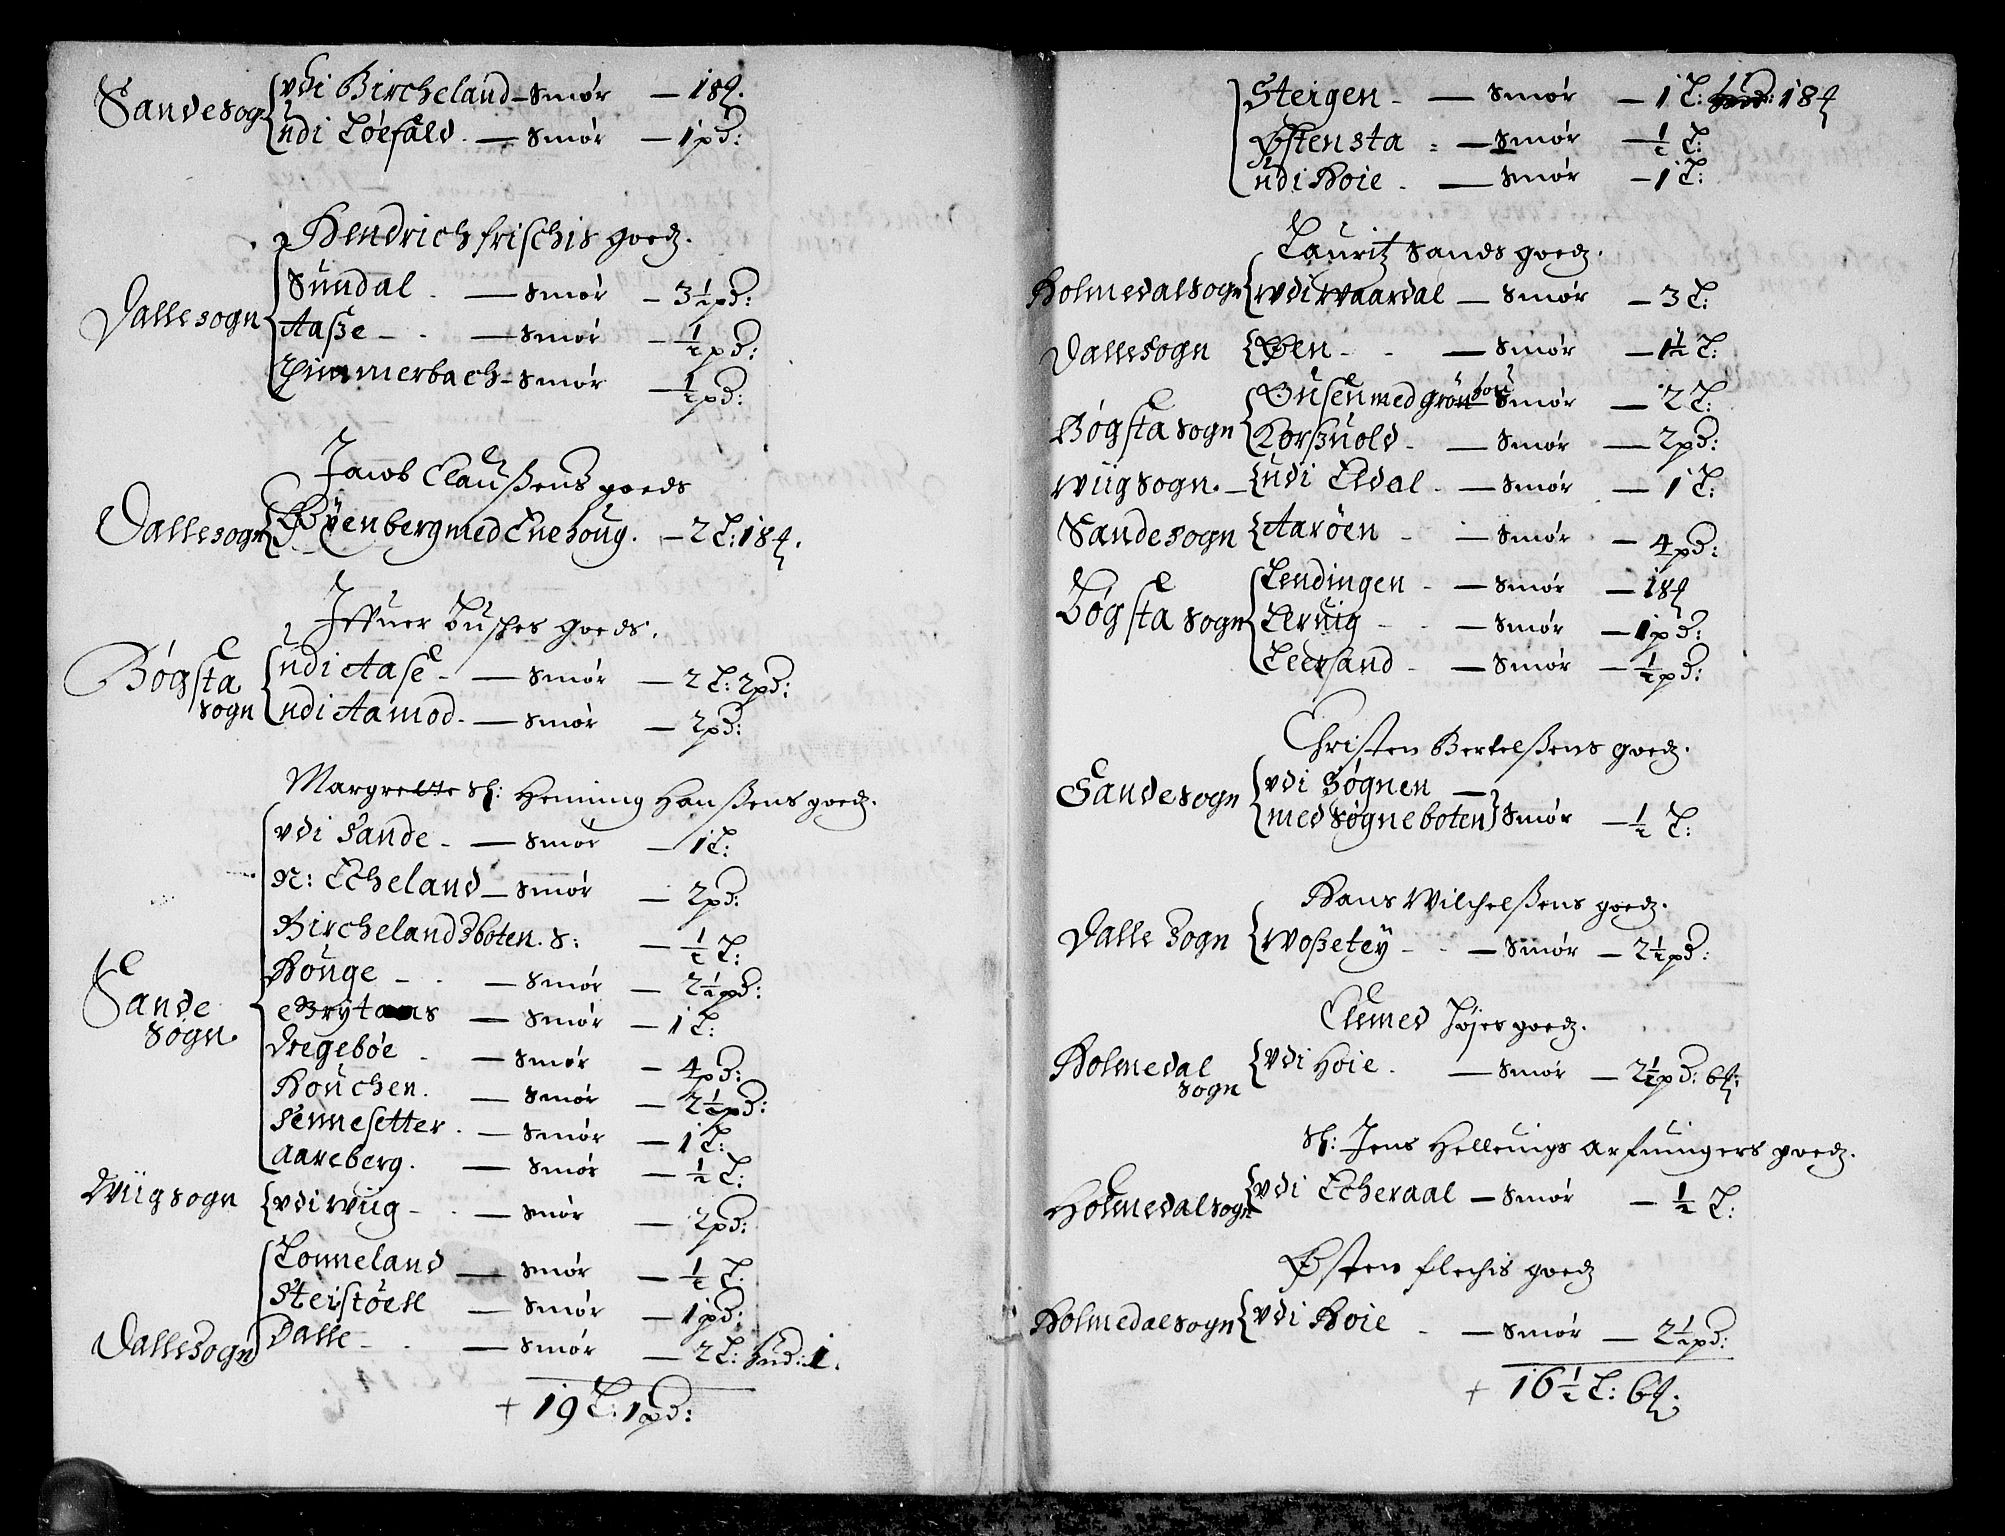 Sandesogn { vdi Bircheland – smør – 18 ℔.
udi Løefald. – smør – 1 pd:
Hendrich frischis goedz.
Dallesogn { Sundal – smør – 3½ pd:
Aasze – smør – ½ pd:
Timmerbach – smør – ½ pd:
Jacob Claussens goeds
Dallesogn { Øyenberg med Enehoug. – 2 L: 18 ℔.
Iffuer Busches goeds.
Bøgsta sogn { udi Aase – smør – 2 L: 2 pd:
udi Aamod – smør – 2 pd:
Margrette Sl: Henning Hanssens goedz.
Sande Sogn. { vdi Sande – smør – 1 L:
N: Echeland – smør – 2 pd:
Bircheland 3boten. S: – ½ L:
Houge – smør – 2½ pd:
Grytaas – smør – 1 L:
Dregebøe – smør – 4 pd:
Houchen. – smør – 2½ pd:
Sennesetter. – smør – 1 L:
Aareberg. – smør – ½ L:
Wiigsogn { vdi Wiig – smør – 2 pd:
Dallesogn { Lonneland – smør – ½ L:
Steistöell – smør – 1 pd:
Dalle – smør – 2 L: hud: 1.
+ 19 L: 1 pd:
Steigen – smør – 1 L: 18 ℔
Østensta – smør – ½ L:
udi Hoie – smør – 1 L:
Lauritz Sands goedz.
Holmedalsogn { vdi Waardal – smør – 3 L:
Dallesogn { Øen – smør – 1½ L:
Bøgsta sogn { Husen med Grön – smør – 2 L:
Korszuold – smør – 2 pd:
Wiigsogn. – { udi Eldal – smør – 1 L:
Sandesogn { Aaröen – smør – 4 pd:
Bøgsta sogn { Lendingen – smør – 18 ℔
Leruig – smør – 1 pd:
Leersand – smør – ½ pd:
Christen Bertelssens goedz.
Sandesogn { vdi Søgnen –
med Søgneboten } smør – ½ L:
Hans Wilchelssens goedz.
Dalle Sogn { Woszetey – smør – 2½ pd:
Clemed goedz.
Holmedal sogn { vdi Hoie. – smør – 2½ pd: 6 ℔:
Sl: Jens Helleuigs Arfuingers goedz.
Holmedalsogn { vdi Echeraal – smør – ½ L:
Østen flechis goedz
Holmedalsogn { vdi Hoie – smør – 2½ pd:
+ 16½ L: 6 ℔.